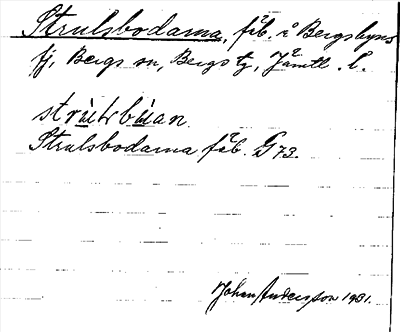 Strulsbodarna, fäb. å Bergsbyns
fj, Bergs sn, Bergs tg, Jämtl. l.
strùtsbùan.
Strulsbodarna fäb. G 73.
Johan Andersson 1931.